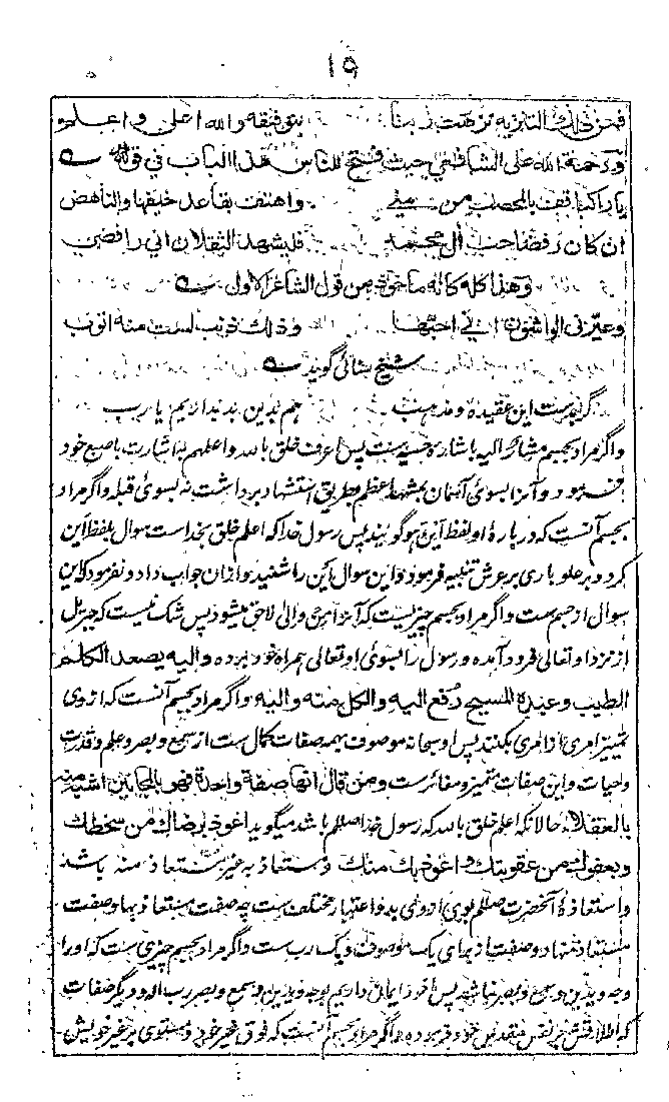 ۱۹
فمن ذلك التنزيه نزهت ربنا بتوفيقه والله اعلى و اعلم
ورحمة الله على الشافعي حيث فتح للناس هذا الباب في قوله
ياراكبا قف بالمحصب من منى واهتف بقاعد خيفها والناهض
ان كان رفضا حب ال محمد فليشهد الثقلان اني رافضي
وهذا كله كانه ماخوذ من قول الشاعر الاول
وعيرنى الواشون انى احبها وذلك ذنب لست منه اتوب
شیخ گوید
گر بدست این عقیده و مذهب هم بدین بد بداریم یا رب
واگر مراد بجسم مشار الیه باشاره حسیه ست پس اعرف خلق بالله واعلهم به اشارت باصبع خود
فرمود و آنرا بسوی آسمان بمشهد اعظم بطریق استشهاد برداشت نه بسوی قبله واگر مراد
بجسم آنست که در بارۂ او لفظ این هو گویند پس رسول خدا که اعلم خلق بخداست سوال بلفظ این
کرد و بر علو باری بر عرش تنبیه فرمود و این سوال این را شنید و ازان جواب داد و نفرمود که این
سوال از جسم ست واگر مراد بجسم چیزیست که آنرا من والی لاحق میشود پس شک نیست که جبریل
از نزد او تعالی فرود آمده و رسول را بسوی او تعالی همراه خود برده و الیه یصعد الکلم
الطيب وعبده المسيح رفع اليه والكل منه واليه واگر مراد بجسم آنست که از وی
تمییز امری از امری بکنند پس او سبحانه موصوف بهمه صفات کمال ست از سمع و بصر و علم و قدرت
وحیات و این صفات متمیز و مغائرست ومن قال انها صفة واحدة فهو بالمجانين اشبه منه
بالعقلاء حالانکه اعلم خلق بالله که رسول خدا صللم باشد میگوید اعوذ برضاك من سخطك
وبعفوك من عقوبتك واعوذ بك منك ومستعاذ به غیر مستعاذ منه باشد
واستعاذۂ آنحضرت صللم بوی از وی بدو اعتبار مختلف ست چه صفت مستعاذ بها وصفت
مستعاذ منها دو صفت از برای یک موصوف و یک رب ست واگر مراد بجسم چیزی ست که او را
وجه و یدین و سمع و بصر باشد پس خود ایمان داریم بوجه و یدین و سمع و بصر رب او و دیگر صفات
که اطلاقش بر نفس مقدس خود فرموده واگر مراد بجسم آنست که فوق غیر خود و مستوی بر غیر خویش